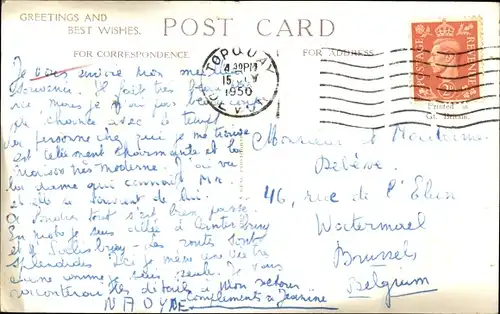 GREETINGS AND
BEST WISHES.
POST CARD
FOR CORRESPONDENCE
FOR ADDRESS
TORQUAY
4 30PM
1950
DEVON
POSTAGE
REVENUE
Printed in
Gt. Britain.
Je vous envoie mon meilleur
souvenir. Il fait très beau
ici mais je n'ai pas beaucoup
de chance avec le temps
La personne chez qui je me trouve
est tellement charmante et la
maison très moderne. J'ai vu
la dame qui connait Mr.
et elle se souvient de lui.
A Londres tout s'est bien passé.
En route je suis allée à Canterbury
et à Salisbury - Les routes sont
splendides. Ici je mène une vie très
calme comme je suis seule. Je vous
raconterai les détails à mon retour
compliments à Jeanine
Monsieur et Madame
Delève.
46, rue de l'Elan
Watermael
Brussels
Belgium